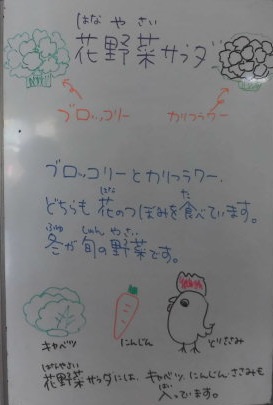 はな や さい
花野菜サラダ
ブロッコリー カリフラワー
ブロッコリーとカリフラワー、
はな た
どちらも 花のつぼみを食べています。
ふゆ しゅん やさい
冬が旬の野菜です。
キャベツ にんじん とりささみ
はなやさい
花野菜サラダには、キャベツ、にんじん、ささみも
はい
入っています。